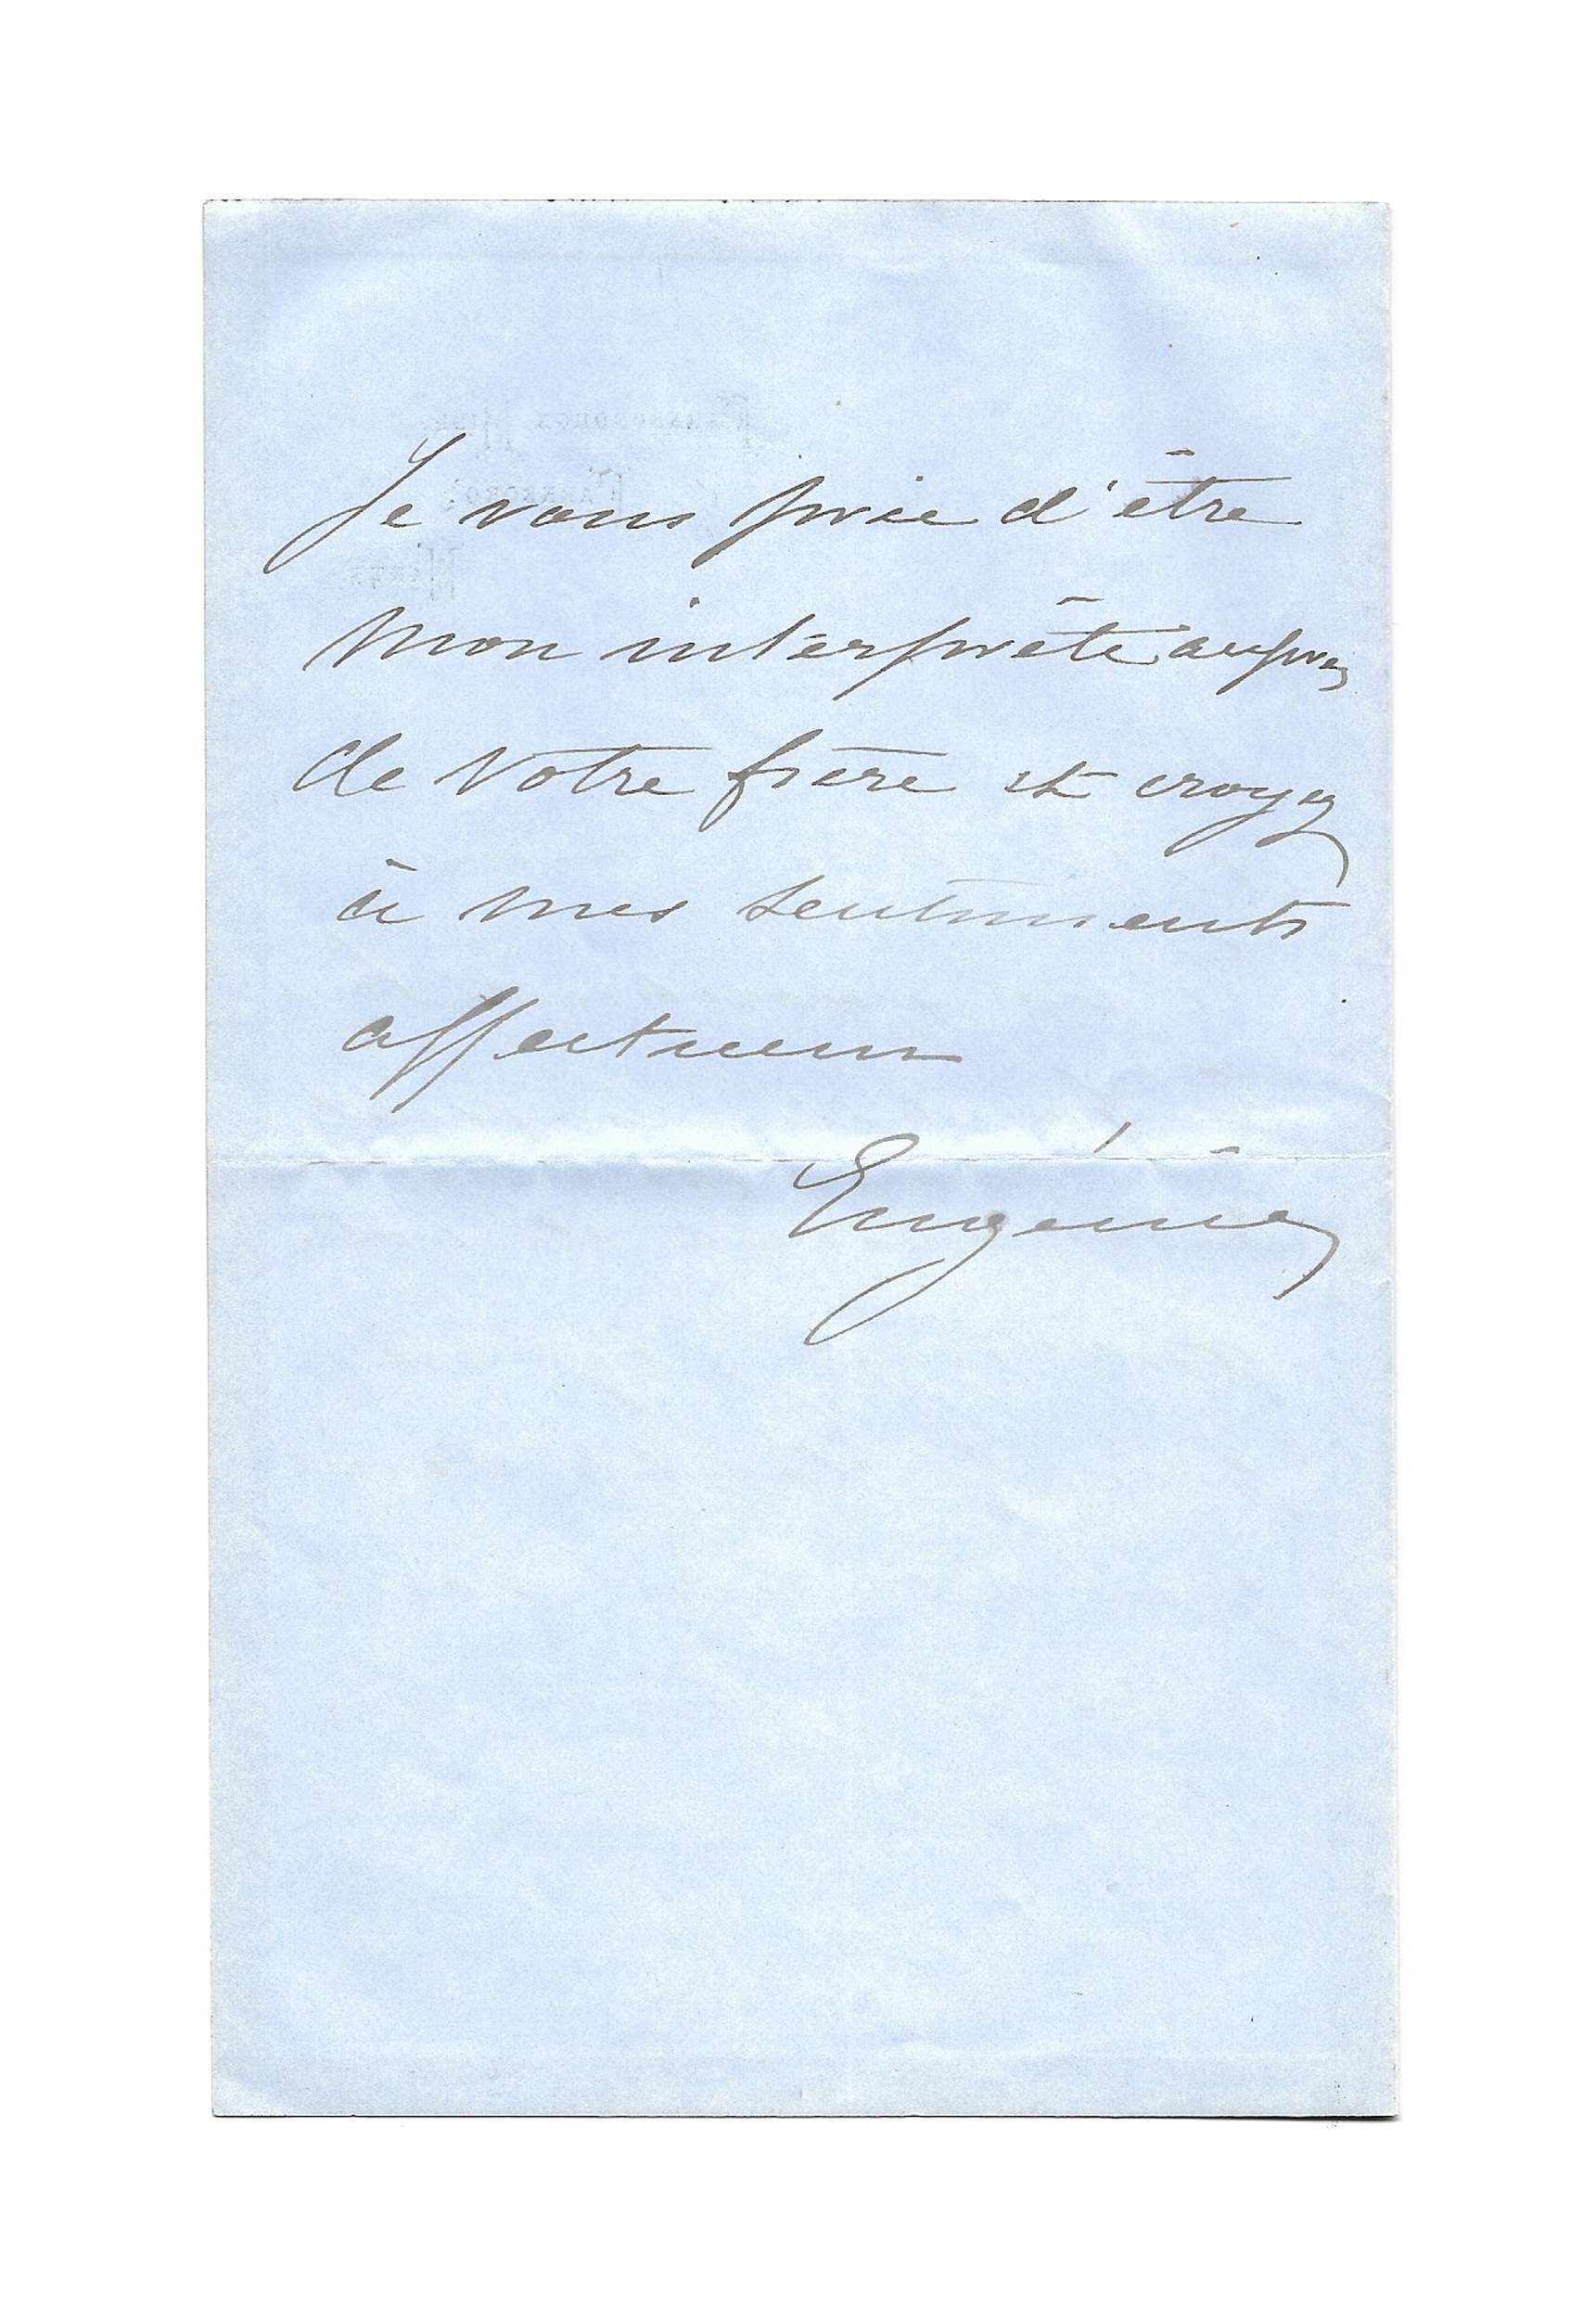 Je vous prie d'être
mon interprète auprès
de votre frère et croyez
à mes sentiments
affectueux
Eugénie